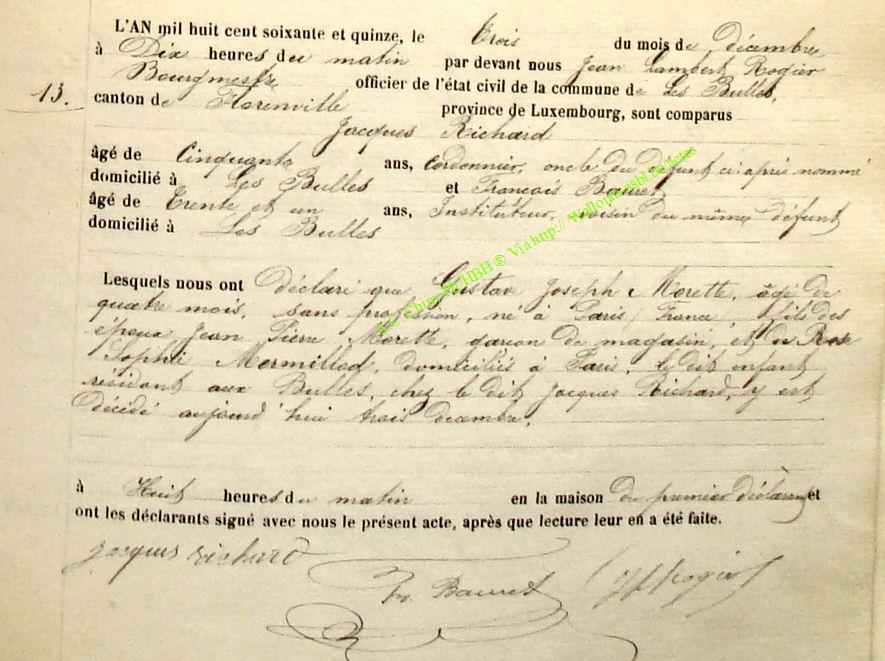 L'AN mil huit cent soixante et quinze, le Trois du mois de décembre
à Dix heures du matin par devant nous Jean Lambert Rogier
Bourgmestre officier de l'état civil de la commune de Les Bulles,
13. canton de Florenville province de Luxembourg, sont comparus
Jacques Richard
âgé de Cinquante ans, Cordonnier, oncle du défunt ci après nommé
domicilié à Les Bulles et François Bauret
âgé de Trente et un ans, Instituteur, voisin du même défunt
domicilié à Les Bulles
Lesquels nous ont déclaré que Gustave Joseph Morette, âgé de
quatre mois, sans profession, né à Paris (France) fils des
époux Jean Pierre Morette, garçon de magasin, et de Rose
Sophie Mermillod, domiciliés à Paris, le dit enfant
résidant aux Bulles, chez le dit Jacques Richard, y est
décédé aujourd'hui trois decembre,
à Huit heures du matin en la maison du premier déclarant et
ont les déclarants signé avec nous le présent acte, après que lecture leur en a été faite.
jacques richard
Fr. Bauret JLRogier
HBH © Via http://